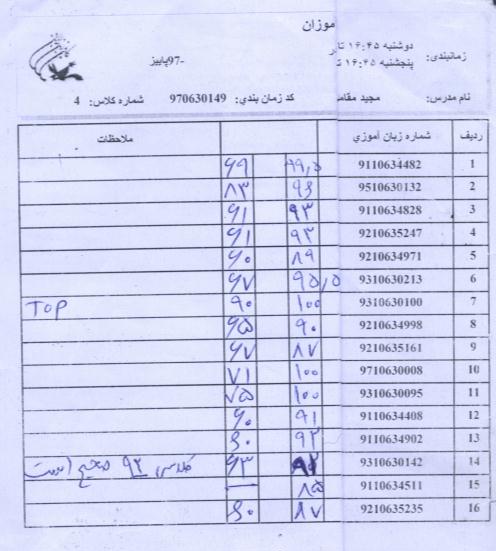 موزان
زمانبندی: دوشنبه ۱۶:۴۵ تا
پنجشنبه ۱۶:۴۵
-97پاییز
نام مدرس: مجید کد زمان بندی: 970630149 شماره کلاس: 4
ردیف شماره زبان آموزی ملاحظات
1 9110634482 ۹۹٫۵ ۶۹
2 9510630132 ۹۶ ۸۳
3 9110634828 ۹۳ ۶۱
4 9210635247 ۹۳ ۶۱
5 9210634971 ۸۹ ۶۰
6 9310630213 ۹۵٫۵ ۶۷
7 9310630100 ۱۰۰ ۹۰ TOP
8 9210634998 ۹۰ ۶۵
9 9210635161 ۸۷ ۶۷
10 9710630008 ۱۰۰ ۷۱
11 9310630095 ۱۰۰ ۷۵
12 9110634408 ۹۱ ۶۰
13 9110634902 ۹۲ ۶۰
14 9310630142 ۶۳ کلاسی ۹۲ صحیح است
15 9110634511 ۸۵ —
16 9210635235 ۸۷ ۶۰